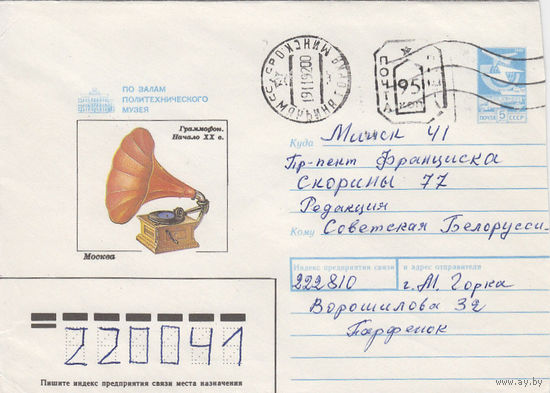 ПО ЗАЛАМ
ПОЛИТЕХНИЧЕСКОГО
МУЗЕЯ
Граммофон.
Начало XX в.
Москва
ПОЧТА
95
коп
ПОЧТА 5 СССР
Куда Минск 41
Пр-пент Франциска
Скорины 77
Редакция
Кому Советская Белорусси
Индекс предприятия связи и адрес отправителя
222810 г. М. Горка
Ворошилова 32
Парфенок
220041
Пишите индекс предприятия связи места назначения
www.ay.by